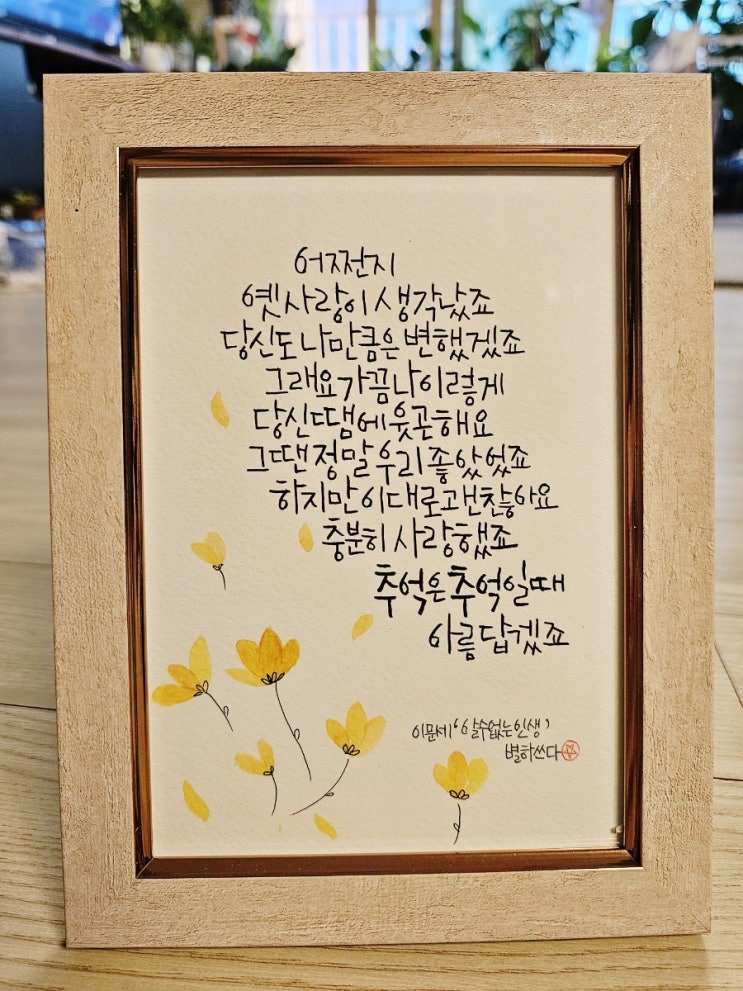 어쩐지
옛 사랑이 생각났죠
당신도 나만큼은 변했겠죠
그래요 가끔 나 이렇게
당신 땜에 웃곤 해요
그땐 정말 우리 좋았었죠
하지만 이대로 괜찮아요
충분히 사랑했죠
추억은 추억일 때
아름답겠죠
이문세 '알 수 없는 인생'
별하쓰다